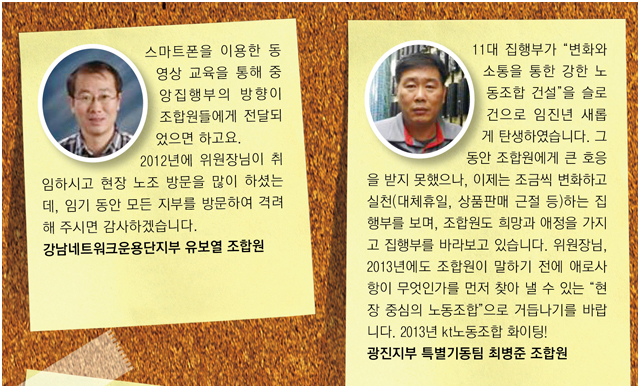 스마트폰을 이용한 동
영상 교육을 통해 중
앙집행부의 방향이
조합원들에게 전달되
었으면 하고요.
2012년에 위원장님이 취
임하시고 현장 노조 방문을 많이 하셨는
데, 임기 동안 모든 지부를 방문하여 격려
해 주시면 감사하겠습니다.
강남네트워크운용단지부 유보열 조합원
11대 집행부가 “변화와
소통을 통한 강한 노
동조합 건설”을 슬로
건으로 임진년 새롭
게 탄생하였습니다. 그
동안 조합원에게 큰 호응
을 받지 못했으나, 이제는 조금씩 변화하고
실천(대체휴일, 상품판매 근절 등)하는 집
행부를 보며, 조합원도 희망과 애정을 가지
고 집행부를 바라보고 있습니다. 위원장님,
2013년에도 조합원이 말하기 전에 애로사
항이 무엇인가를 먼저 찾아 낼 수 있는 “현
장 중심의 노동조합”으로 거듭나기를 바랍
니다. 2013년 kt노동조합 화이팅!
광진지부 특별기동팀 최병준 조합원